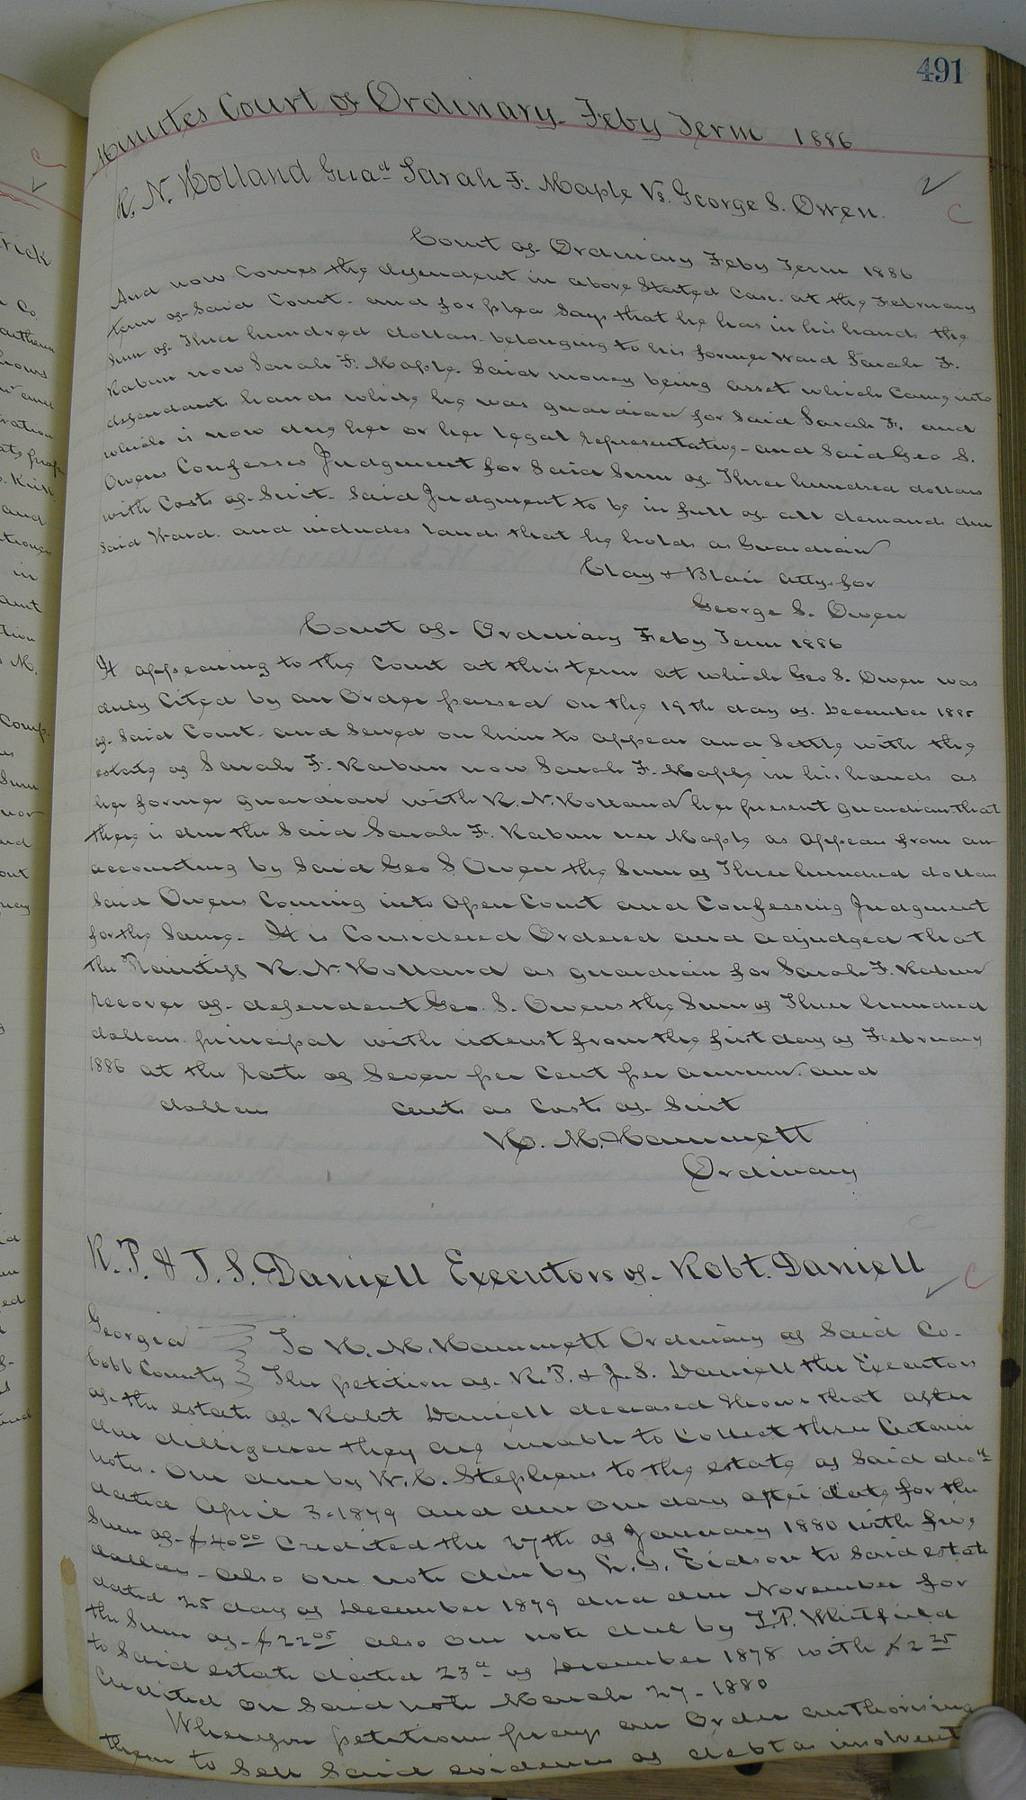 491
Minutes Court of Ordinary. Feby Term 1886
R. N. Holland Guad Sarah F. Maple Vs. George S. Owen.
Court of Ordinary Feby Term 1886
And now Comes the defendent in above Stated Case. at the February
term of Said Court. and for plea Says that he has in his hands the
Sum of Three hundred dollars belonging to his former Ward Sarah F.
Rabun now Sarah F. Maple. Said money being asset which Came into
defendant hands while he was guardian for Said Sarah F. and
which is now due her or her legal representative - and Said Geo S.
Owens Confesses Judgment for Said Sum of Three hundred dollars
with Costs of Suit. Said Judgment to be in full of all demands due
Said Ward. and includes lands that he holds as Guardian
Clay & Blair Atty. for
George S. Owen
Court of Ordinary Feby Term 1886
It appearing to the Court at this term at which Geo S. Owen was
duly Cited by an Order passed on the 19th day of December 1885
of Said Court. and Served on him to appear and Settle with the
estate of Sarah F. Rabun now Sarah F. Maple in his hands as
her former guardian with R. N. Holland her present guardian that
there is due the Said Sarah F. Rabun Maple as appears from an
accounting by Said Geo S Owen the Sum of Three hundred dollars
Said Owens Coming into Open Court and Confessing Judgment
for the Same. It is Considered Ordered and adjudged that
the Plaintiff R. N. Holland as guardian for Sarah F. Rabun
recover of defendent Geo. S. Owens the Sum of Three hundred
dollars principal with interest from the first day of February
1886 at the rate of Seven per Cent per annum. and
dollars cents as Costs of Suit
H. M. Hammett
Ordinary
R. P. & J. S. Daniell Executors of Robt. Daniell
Georgia To H. M. Hammett Ordinary of Said Co.
Cobb County The petition of R. P. & J. S. Daniell the Executors
of the estate of Robt Daniell deceased Shows that after
due dilligence they are unable to Collect three Certain
notes. One due by W. C. Stephens to the estate of Said decd
dated April 3. 1879 and due One day after date for the
Sum of $40 00 Credited the 27th of January 1880 with five
dollars. also one note due by Eidson to Said estate
dated 25 day of December 1879 and due November for
the Sum of $22 05 also one note due by Whitfield
to Said estate dated 23d of December 1878 with $2 25
Credited on Said note March 27. 1880
Wherefore petitioners prays an Order authorising
them to Sell Said evidences of debt as insolvent